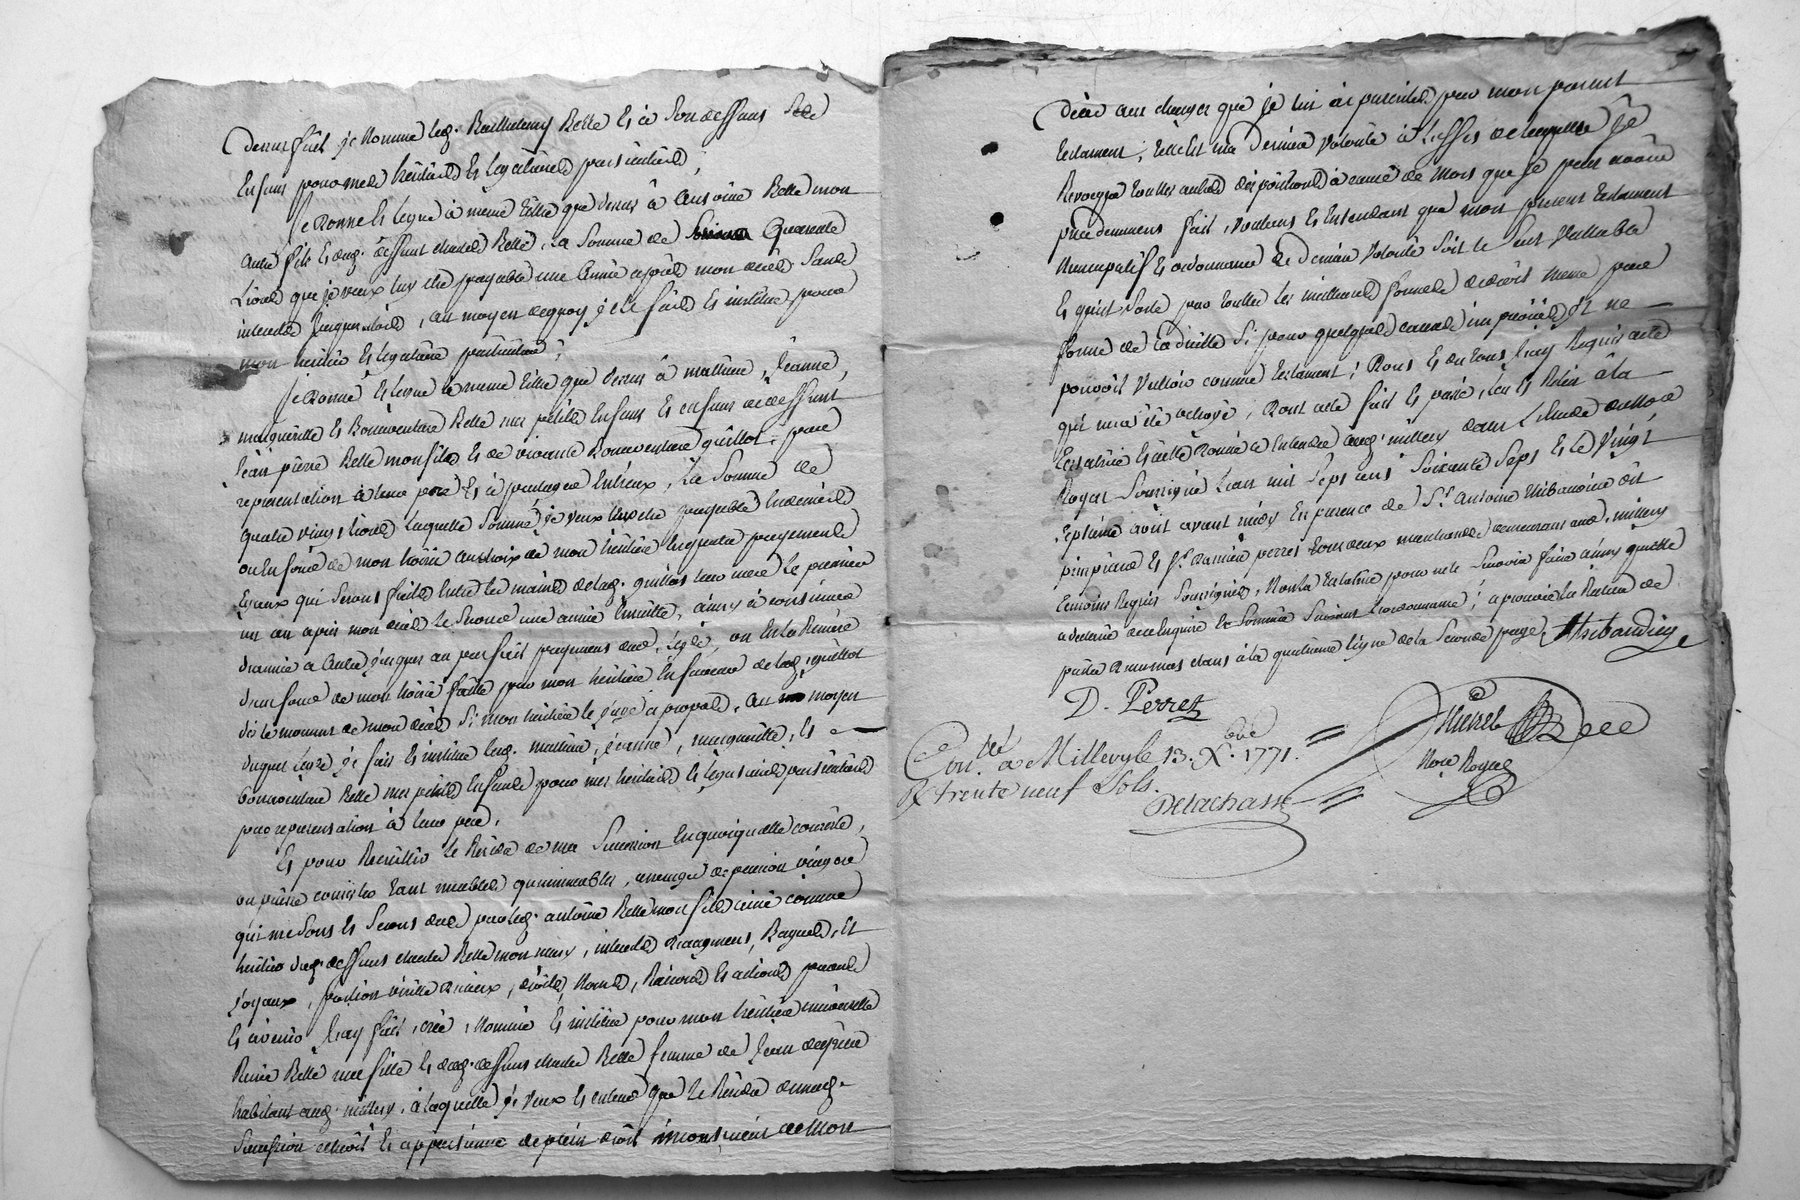 Dessus fait je nomme led. Barthelemy Belle Et à Son deffaus Sesd
Enfans pour mes héritiers Et légataires particuliers ;
Je Donne Et legue à meme titre que dessus à Antoine Belle mon
autre fils Et dud. deffunt charles Belle, La Somme de Quarante
Livres que je veux luy etre payable une année après mon décès Sans
interets jusques alors, au moyen de quoy je le fais Et institue pour
mon héritier Et légataire particulier ;
Je Donne Et legue à meme titre que dessus à mathieu, Jeanne,
marguerite Et Bonnaventure Belle mes petits Enfans Et enfans de deffunt
Jean pierre Belle mon fils Et de vivante Bonnaventure guillot, par
representation à leur pere Et à partager Entreux, La Somme de
quatre vingt Livres Laquelle Somme je veux leur etre payable En deniers
ou En fonds de mon hoirie au choix de mon héritiere En quatre payements
Egaux qui seront faits Entre les mains de lad. guillot leur mere Le premier
un an apres mon décès Le Second une année Ensuitte, ainsy à continuer
d'année à autre jusques au parfait payement dud. Legs, ou En la Remise
d'un fonds de mon hoirie faitte par mon héritiere En faveur de lad. guillot
dès le moment de mon décès Si mon héritiere le juge à propos, au moyen
duquel Legs je fais Et institue lesd. mathieu, jeanne, marguerite, Et
bonnaventure Belle mes petits Enfants pour mes héritiers Et légataires particuliers
par representation à leur pere.
Et pour Recueillir Le Residu de ma Succession En quoiqu'elle consiste,
ou puisse consister tant meubles qu'immeubles, arrerages de pension viagere
qui me sont Et Seront dues par led. antoine Belle mon fils ainé comme
héritier dud. deffunt charles Belle mon mary, interets d'augment, Bagues, Et
Joyaux, portion virile d'iceux, droits, Noms, Raisons Et actions presents
Et avenir J'ay fait, créé, Nommé Et institué pour mon héritiere universelle
Renée Belle ma fille Et dud. deffunt charles Belle femme de Jean
habitant aud. millery, à laquelle je veux Et entend que Le Residu de mad.
Succession échoit Et appartienne de plein droit à mon
décès aux charges que je lui ai prescrites par mon present
testament, telle est ma derniere Volonté à L'effet de laquelle Je
Revoque toutes autres dispositions à cause de Mort que je peux avoir
precedemment fait, voulant Et Entendant que mon present testament
Nuncupatif Et ordonnance de derniere Volonté Soit le Seul Vallable
Et qu'il Vaille par toutes les meilleures formes de droit meme par
forme de Codicille Si pour quelques causes imprévues Il ne
pouvoit Valloir comme testament ; Dont Et du tout J'ay Requis acte
qui m'a été octroyé, Dont acte fait Et passé, leu Et Releu à la
testatrice Et icelle donné à Entendre aud. millery dans L'étude du Nore
Royal Soussigné L'an mil Sept cent Soixante Sept Et Le Vingt
Septieme août avant midy En presence de Sr. Antoine thibaudier dit
Et Sr. Damien perret tous deux marchands demeurants aud. millery
temoins Requis Soussignés, Non la testatrice pour ne le Scavoir faire ainsy qu'elle
a declaré de ce Enquise Et Sommée Suivant L'ordonnance ; approuvé la Rature de
à la quatrieme ligne de la Seconde page. Thibaudier
D. Perret
Con.lé à Millery le 13. Xbre 1771.
R trente neuf Sols.
Delachasse
Nore Royal